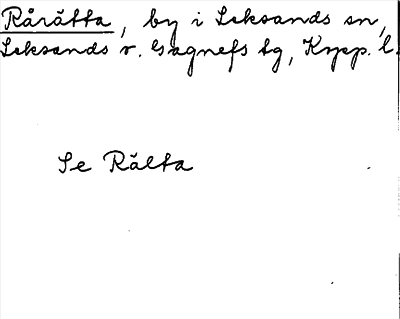 Rårätta, by i Leksands sn,
Leksands o. Gagnefs tg, Kopp. l.
Se Rälta